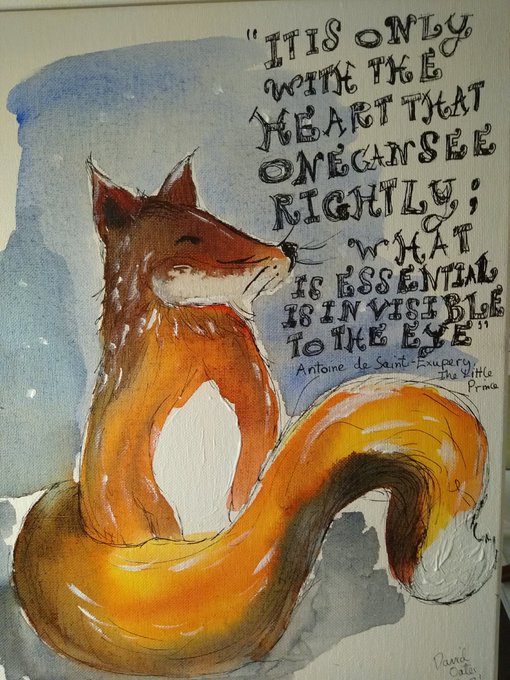 "IT IS ONLY
WITH THE
HEART THAT
ONE CAN SEE
RIGHTLY;
WHAT
IS ESSENTIAL
IS INVISIBLE
TO THE EYE"
Antoine de Saint-Exupery
The Little
Prince
David
Oates